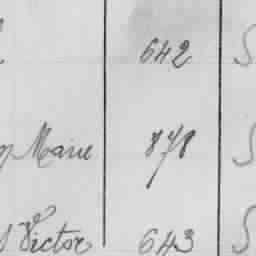 642 S
Marie 878 S
Victor 643 S